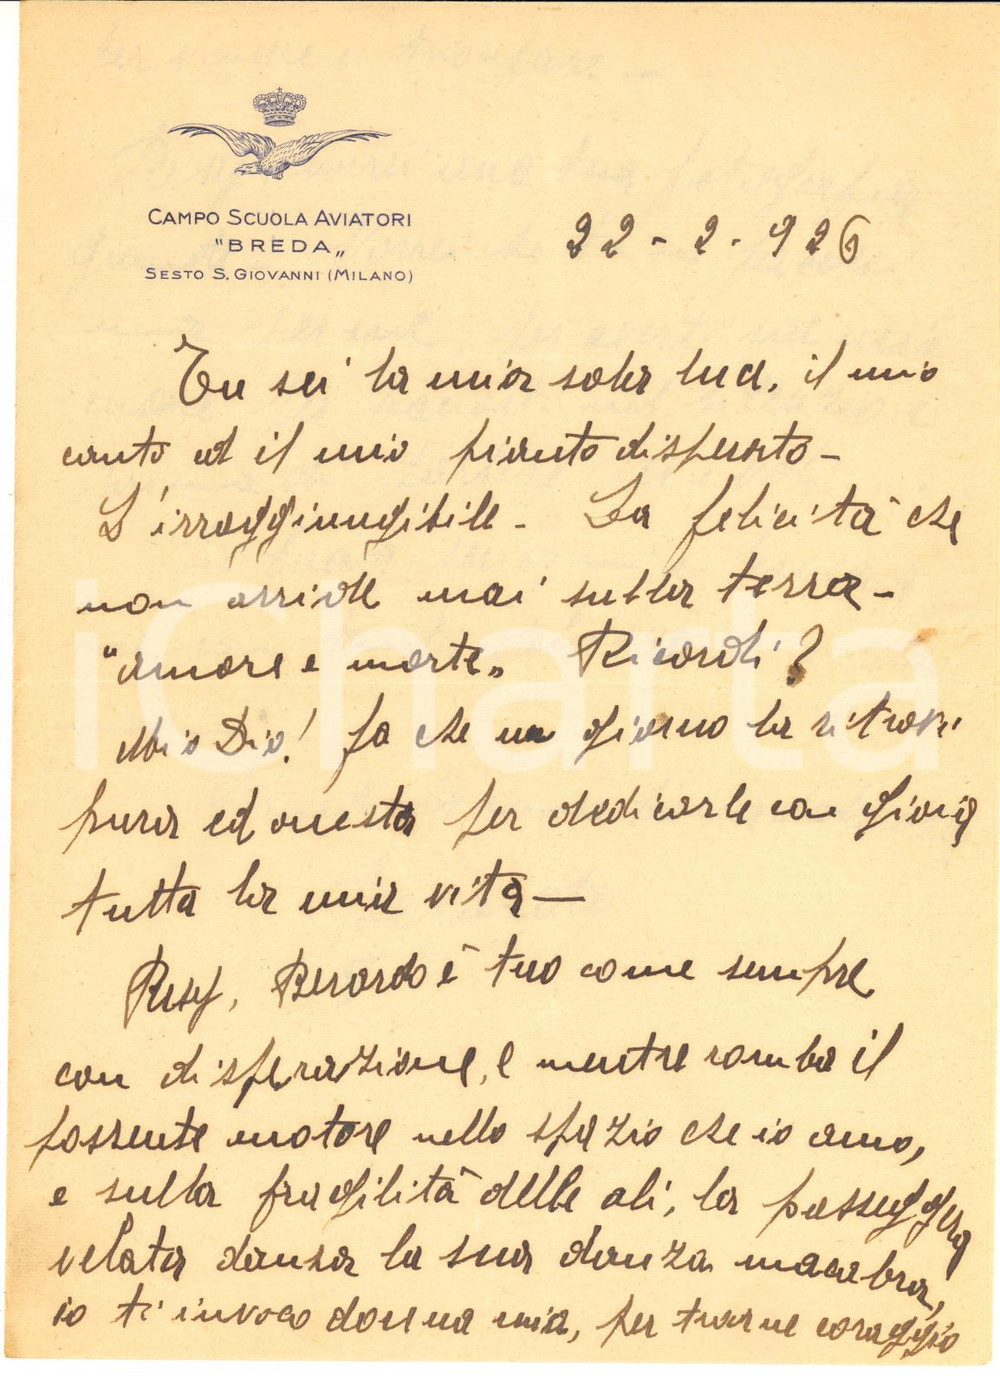 CAMPO SCUOLA AVIATORI
"BREDA„
SESTO S. GIOVANNI (MILANO)
22-2-926
Tu sei la mia sola luce, il mio
canto ed il mio pianto disperato -
L'irraggiungibile - La felicità che
non arride mai sulla terra -
"amore e morte„ Ricordi?
Mio Dio! fa che un giorno la ritrovi
pura ed onesta per dedicarle con gioia
tutta la mia vita -
Resy, Berardo è tuo come sempre
con disperazione, e mentre romba il
possente motore nello spazio che io amo,
e sulla fragilità delle ali, la passeggera
velata danza la sua danza macabra,
io ti invoco donna mia, per trarne coraggio
iCharta